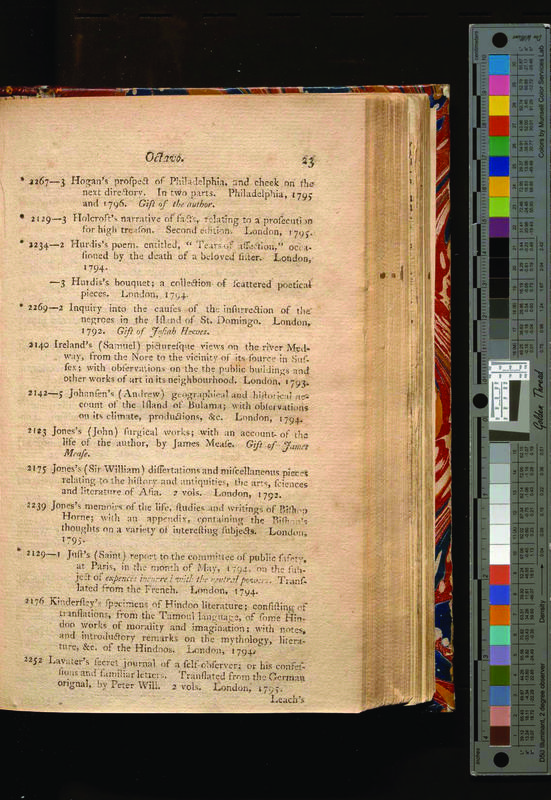 Octavo. 23
* 2267—3 Hogan's proſpect of Philadelphia, and cheek on the
next directory. In two parts. Philadelphia, 1795
and 1796. Gift of the author.
* 2129—3 Holcroft's narrative of facts, relating to a proſecution
for high treaſon. Second edition. London, 1795.
* 2234—2 Hurdis's poem. entitled, “ Tears of affection,” occa-
ſioned by the death of a beloved ſiſter. London,
1794.
—3 Hurdis's bouquet; a collection of ſcattered poetical
pieces. London, 1794.
* 2269—2 Inquiry into the cauſes of the inſurrection of the
negroes in the Iſland of St. Domingo. London,
1792. Gift of Joſiah Hewes.
2140 Ireland's (Samuel) pictureſque views on the river Med-
way, from the Nore to the vicinity of its ſource in Suſ-
ſex; with obſervations on the the public buildings and
other works of art in its neighbourhood. London, 1793.
2142—5 Johanſen's (Andrew) geographical and hiſtorical ac-
count of the Iſland of Bulama; with obſervations
on its climate, productions, &c. London, 1794.
2123 Jones's (John) ſurgical works; with an account of the
life of the author, by James Meaſe. Gift of James
Meaſe.
2175 Jones's (Sir William) diſſertations and miſcellaneous pieces
relating to the hiſtory and antiquities, the arts, ſciences
and literature of Aſia. 2 vols. London, 1792.
2239 Jones's memoirs of the life, ſtudies and writings of Biſhop
Horne; with an appendix, containing the Biſhop's
thoughts on a variety of intereſting ſubjects. London,
1795.
* 2129—1 Juſt's (Saint) report to the committee of public ſafety,
at Paris, in the month of May, 1794, on the ſub-
ject of expences incurred with the neutral powers. Tranſ-
lated from the French. London, 1794.
2176 Kinderſley's ſpecimens of Hindoo literature; conſiſting of
tranſlations, from the Tamoul language, of ſome Hin-
doo works of morality and imagination; with notes,
and introductory remarks on the mythology, litera-
ture, &c. of the Hindoos. London, 1794.
2252 Lavater's ſecret journal of a ſelf-obſerver; or his confeſ-
ſions and familiar letters. Tranſlated from the German
orignal, by Peter Will. 2 vols. London, 1795.
Leach's
Colors by Munsell Color Services Lab
Golden Thread
Density
D50 Illuminant, 2 degree observer